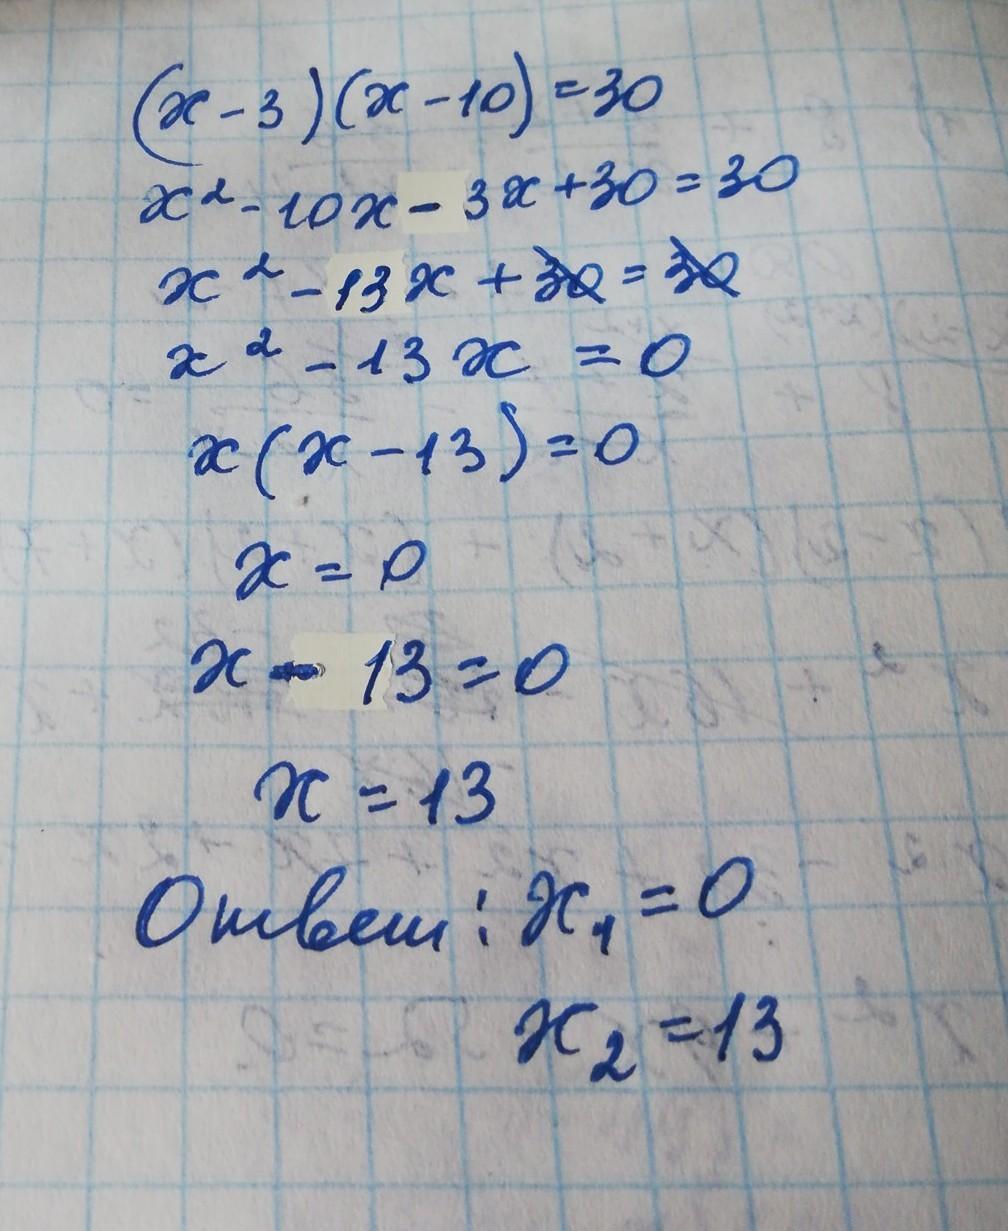 (x-3)(x-10)=30
x²-10x-3x+30=30
x²-13x+30=30
x²-13x=0
x(x-13)=0
x=0
x-13=0
x=13
Ответ: x₁=0
x₂=13